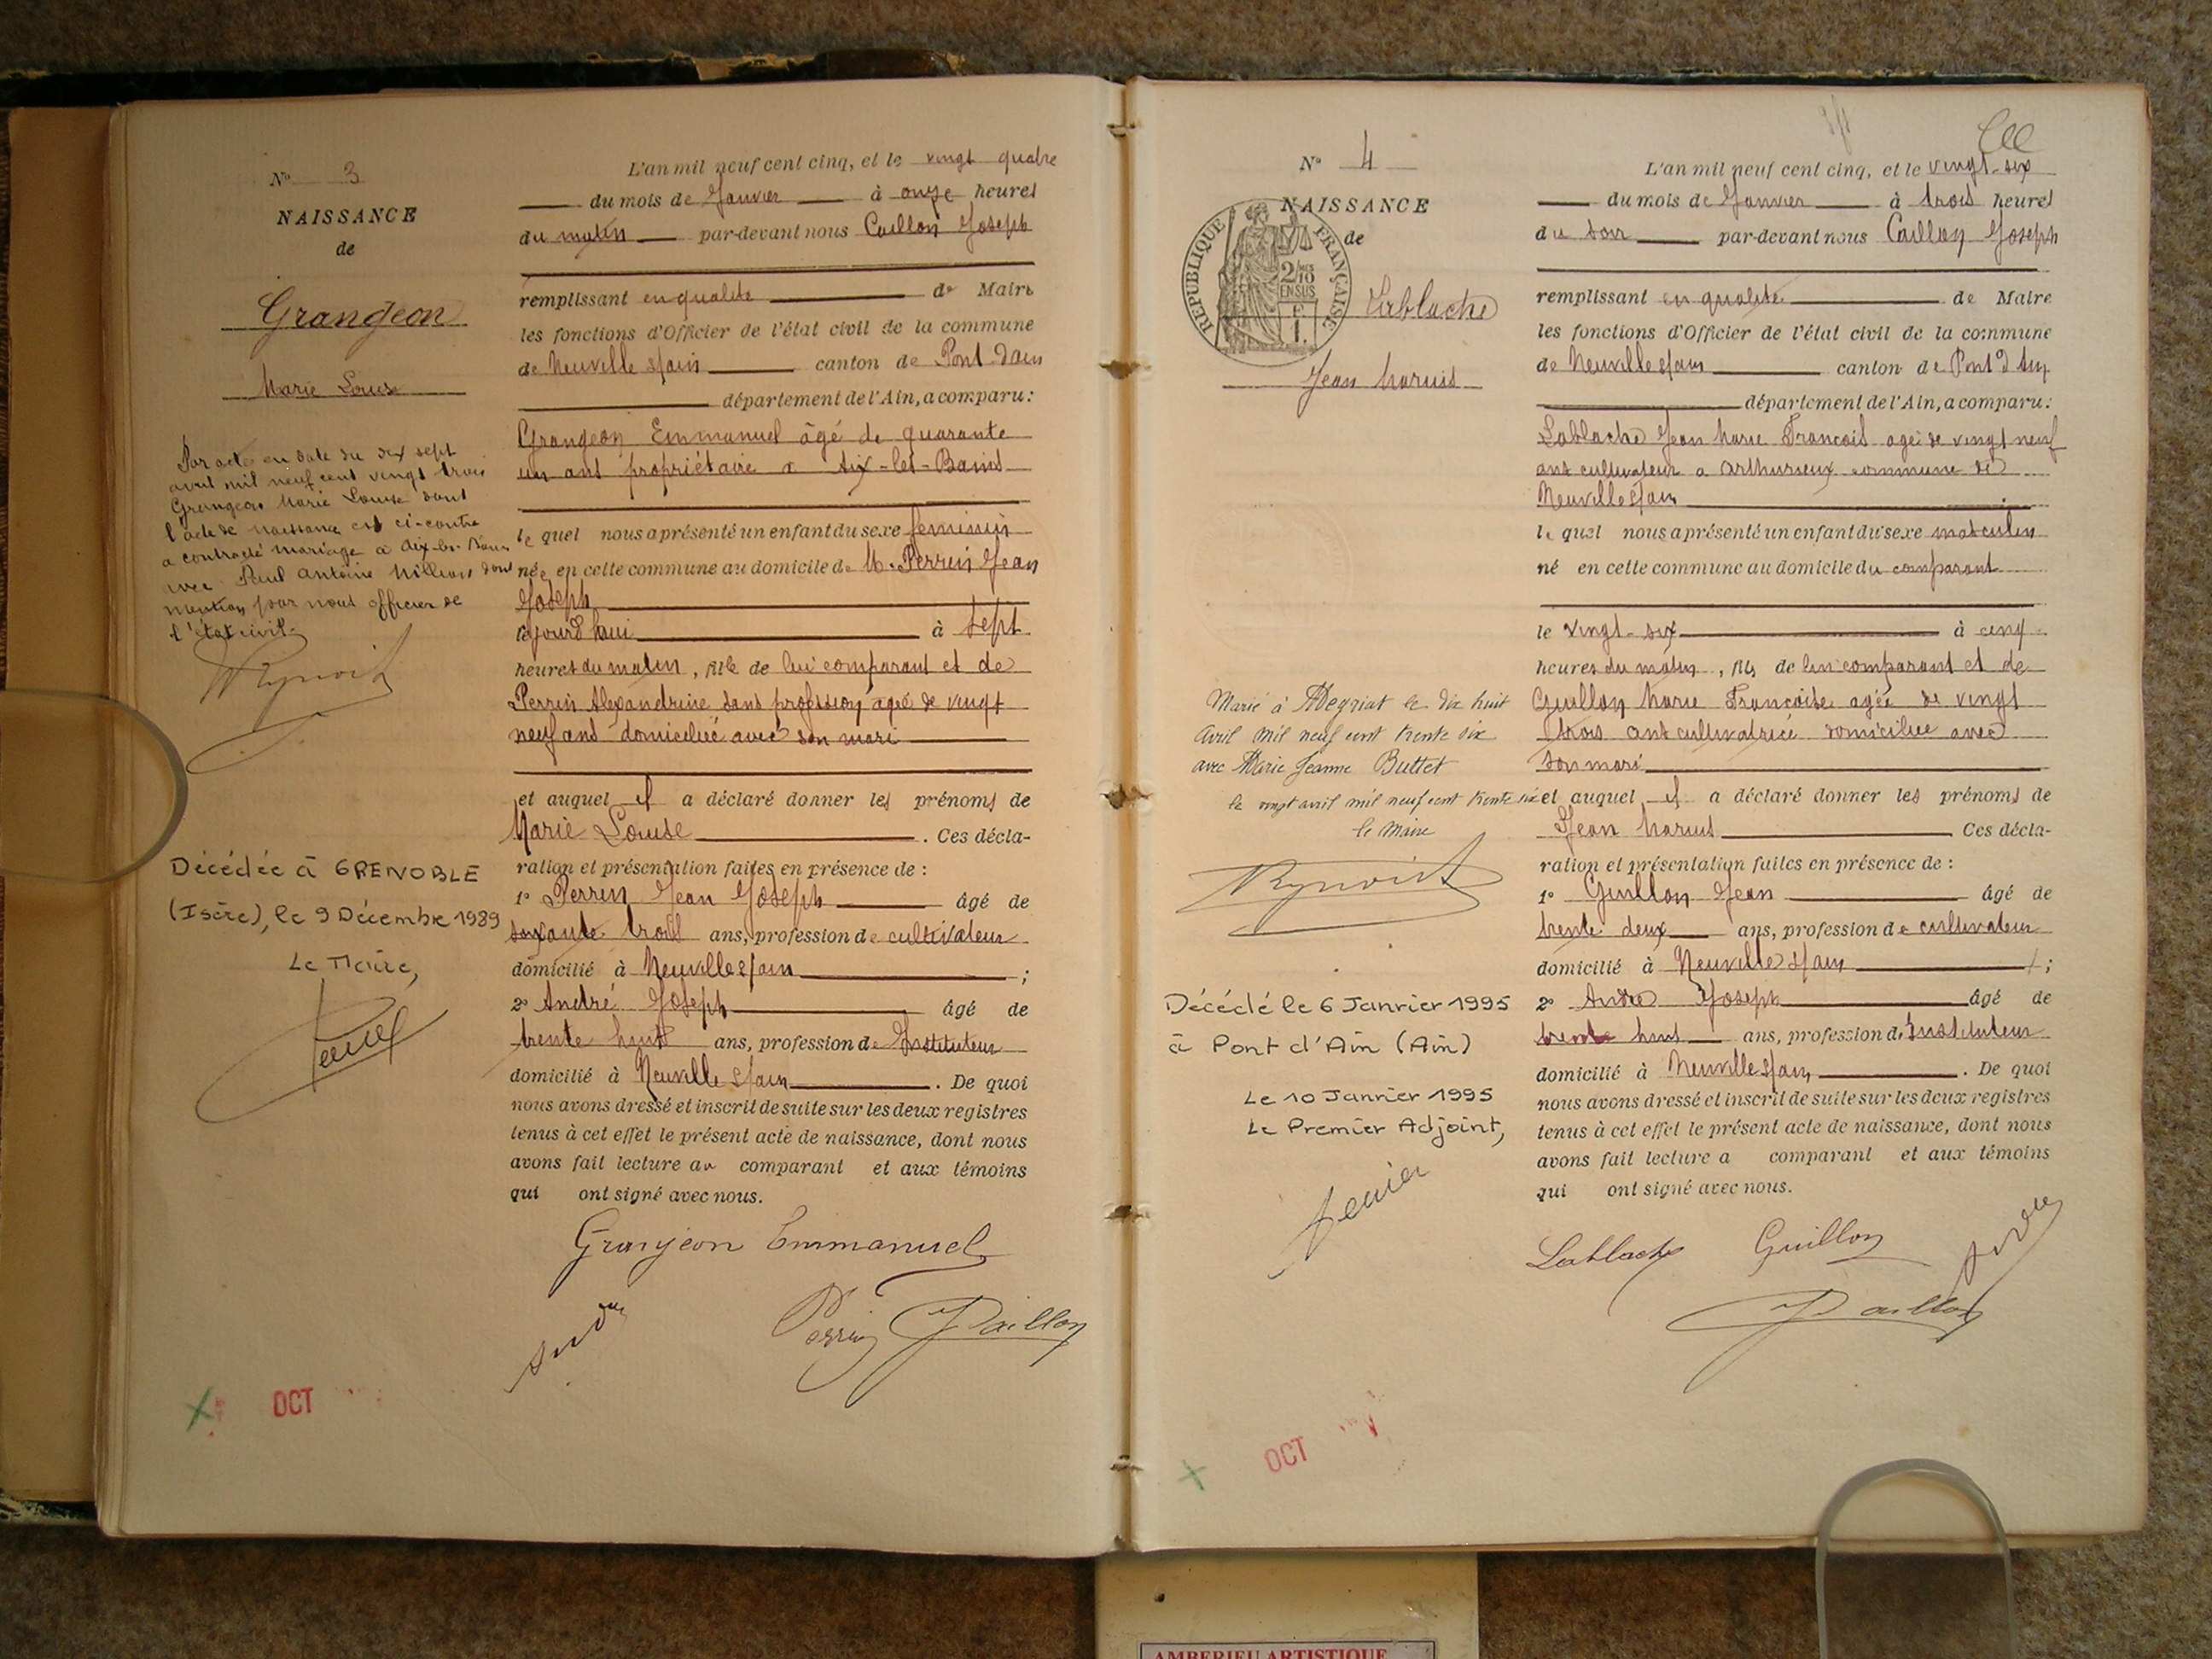 N° 3
NAISSANCE
de
Grangeon
Marie Louise
Par acte en date du dix sept
avril mil neuf cent vingt trois
Grangeon Marie Louise dont
l'acte de naissance est ci-contre
a contracté mariage à Aix-les-Bains
avec Paul Antoine Million dont
mention par nous officier de
l'état civil.
Décédée à GRENOBLE
(Isère), le 9 Décembre 1989
Le Maire,
L'an mil neuf cent cinq, et le vingt quatre
du mois de Janvier à onze heures
du matin par-devant nous Caillon Joseph
remplissant en qualité de Maire
les fonctions d'Officier de l'état civil de la commune
de Neuville s/ain canton de Pont d'ain
département de l'Ain, a comparu:
Grangeon Emmanuel âgé de quarante
un ans propriétaire a Aix-les-Bains
le quel nous a présenté un enfant du sexe feminin
née en cette commune au domicile de M. Perrin Jean
Joseph
cejourd'hui à sept
heures du matin, fille de lui comparant et de
Perrin Alexandrine sans profession agée de vingt
neuf ans domiciliée avec son mari
et auquel il a déclaré donner les prénoms de
Marie Louise. Ces décla-
ration et présentation faites en présence de:
1° Perrin Jean Joseph âgé de
soixante trois ans, profession de cultivateur
domicilié à Neuville s/ain;
2° André Joseph âgé de
trente huit ans, profession de Instituteur
domicilié à Neuville s/ain. De quoi
nous avons dressé et inscrit de suite sur les deux registres
tenus à cet effet le présent acte de naissance, dont nous
avons fait lecture au comparant et aux témoins
qui ont signé avec nous.
Grangeon Emmanuel
André Perrin J Caillon
OCT
N° 4
NAISSANCE
de
REPUBLIQUE FRANÇAISE
2/10
EN SUS
Lablache
Jean Marius
Marié à Meyriat le dix huit
Avril mil neuf cent trente six
avec Marie Jeanne Buttet
le vingt avril mil neuf cent trente six
le Maire
Décédé le 6 Janvier 1995
à Pont d'Ain (Ain)
Le 10 Janvier 1995
Le Premier Adjoint,
L'an mil neuf cent cinq, et le vingt-six
du mois de Janvier à trois heures
du soir par-devant nous Caillon Joseph
remplissant en qualité de Maire
les fonctions d'Officier de l'état civil de la commune
de Neuville s/ain canton de Pont d'Ain
département de l'Ain, a comparu:
Lablache Jean Marie Francois agé de vingt neuf
ans cultivateur a Arthurieux commune de
Neuville s/ain
le quel nous a présenté un enfant du sexe masculin
né en cette commune au domicile du comparant
le vingt-six à cinq
heures du matin, fils de lui comparant et de
Guillon Marie Francoise agée de vingt
trois ans cultivatrice domiciliée avec
son mari
et auquel il a déclaré donner les prénoms de
Jean Marius Ces décla-
ration et présentation faites en présence de:
1° Guillon Jean âgé de
trente deux ans, profession de cultivateur
domicilié à Neuville s/ain;
2° André Joseph âgé de
trente huit ans, profession d'Instituteur
domicilié à Neuville s/ain. De quoi
nous avons dressé et inscrit de suite sur les deux registres
tenus à cet effet le présent acte de naissance, dont nous
avons fait lecture a comparant et aux témoins
qui ont signé avec nous.
Lablache Guillon André
J Caillon
OCT
AMBERIEU ARTISTIQUE